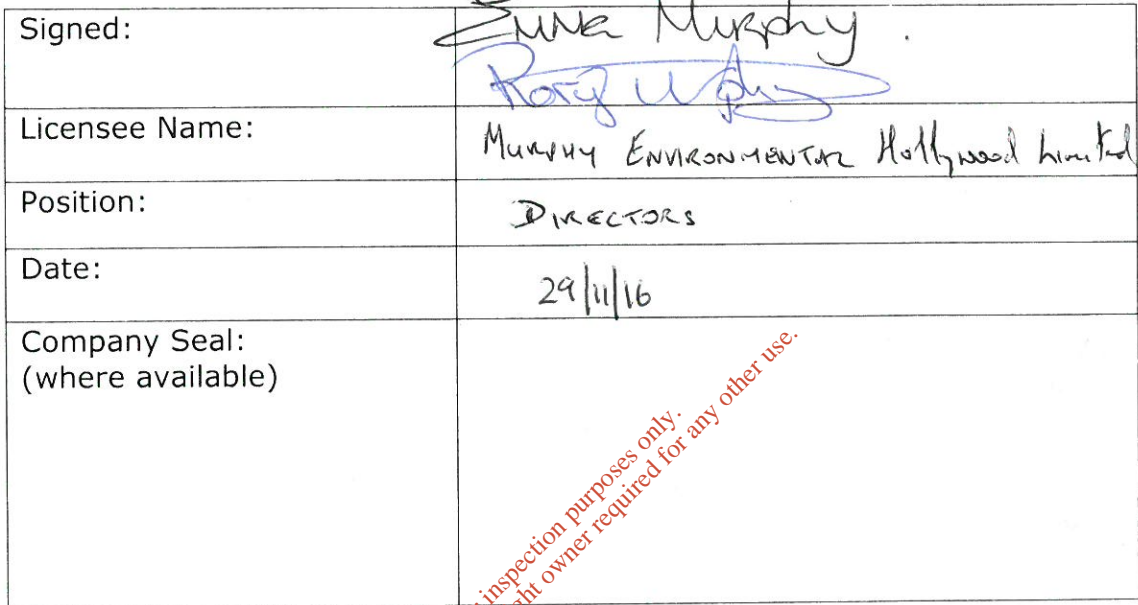 Signed:
Murphy
Licensee Name: MURPHY ENVIRONMENTAL Hollywood Limited
Position: DIRECTORS
Date: 29/11/16
Company Seal:
(where available)
inspection purposes only.
owner required for any other use.